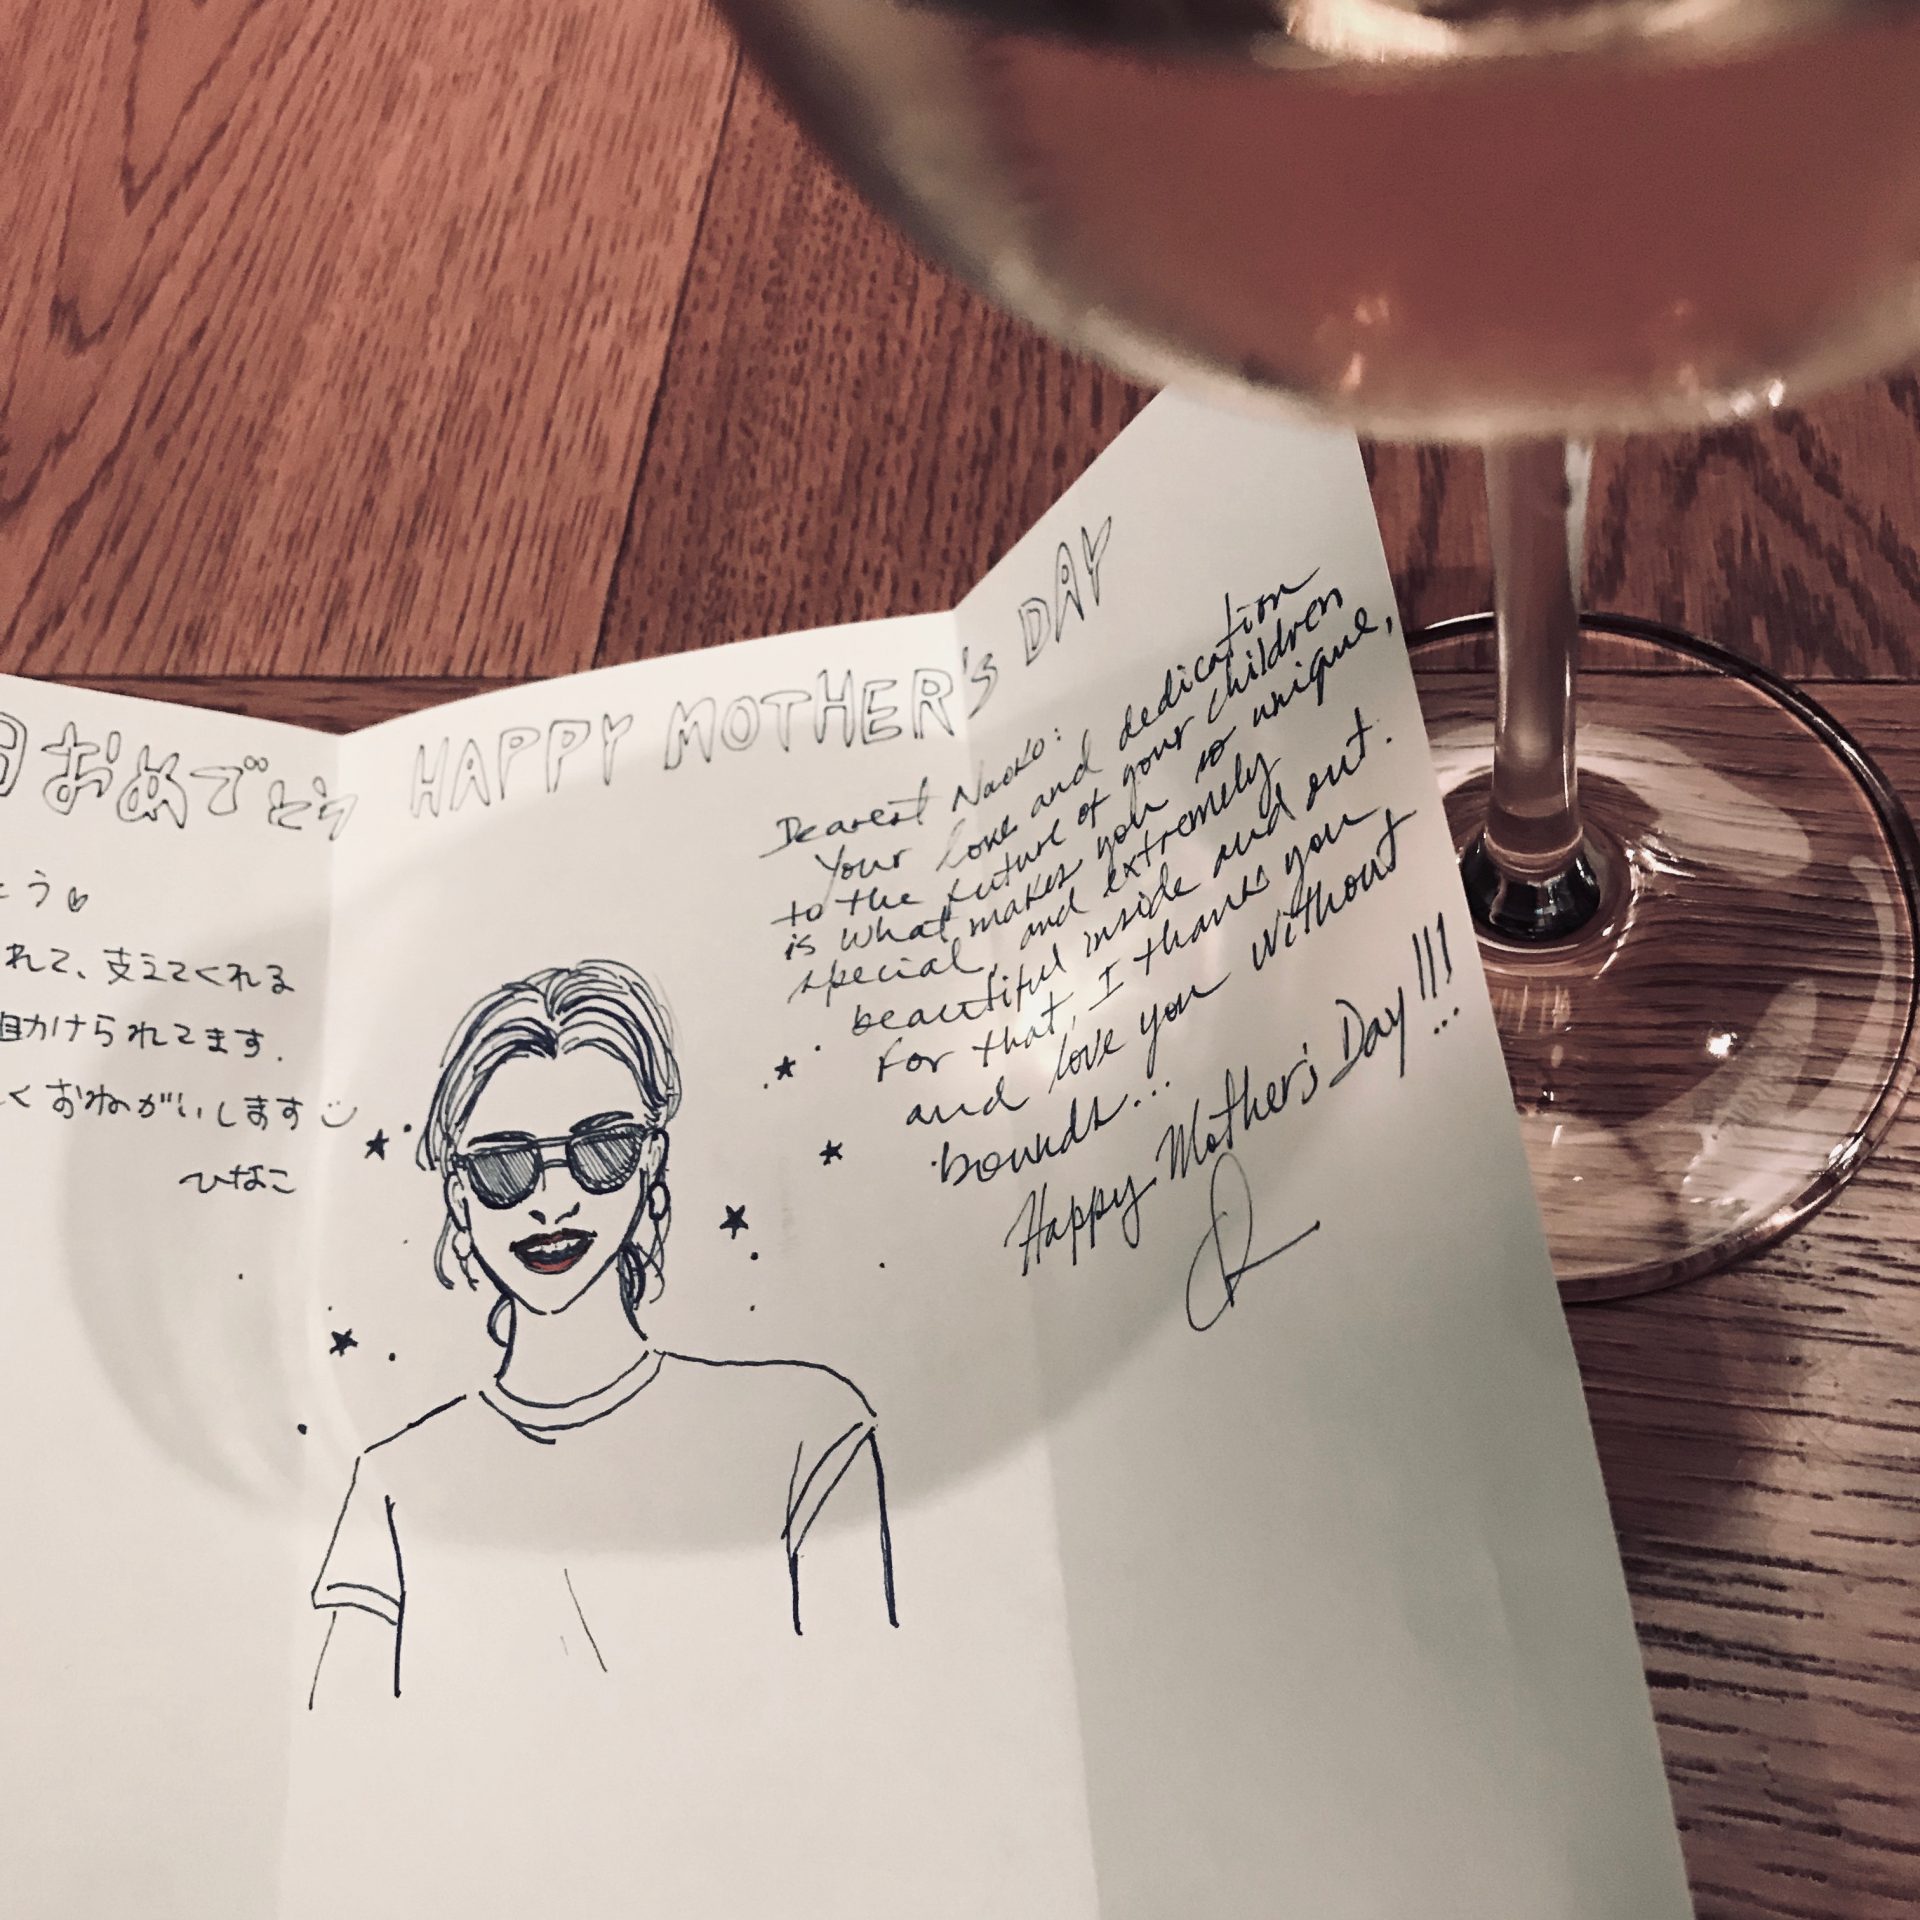 日おめでとう
とう
れて、支えてくれる
助けられてます.
くおねがいします
ひなこ
HAPPY MOTHER'S DAY
Dearest Naoko:
Your love and dedication
to the future of your children
is what makes you so unique,
special, and extremely
beautiful inside and out.
For that, I thank you
and love you without
bounds...
Happy Mother's Day!!!